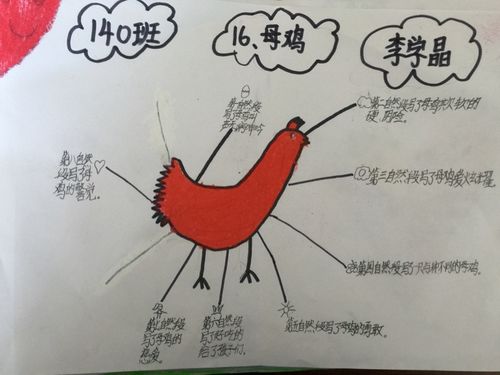 140班
16、母鸡
李学晶
第一自然段
写了母鸡叫
声如病中呻吟
第二自然段写了母鸡欺软怕
硬、阴险。
第三自然段写了母鸡爱炫耀
自然段写了
不同的母鸡。
第五自然段写了母鸡的勇敢。
第六自然段
写了好吃的
给了孩子们。
第七自然段
写了母鸡的
慈爱。
第八自然
段写了母
鸡的警觉。